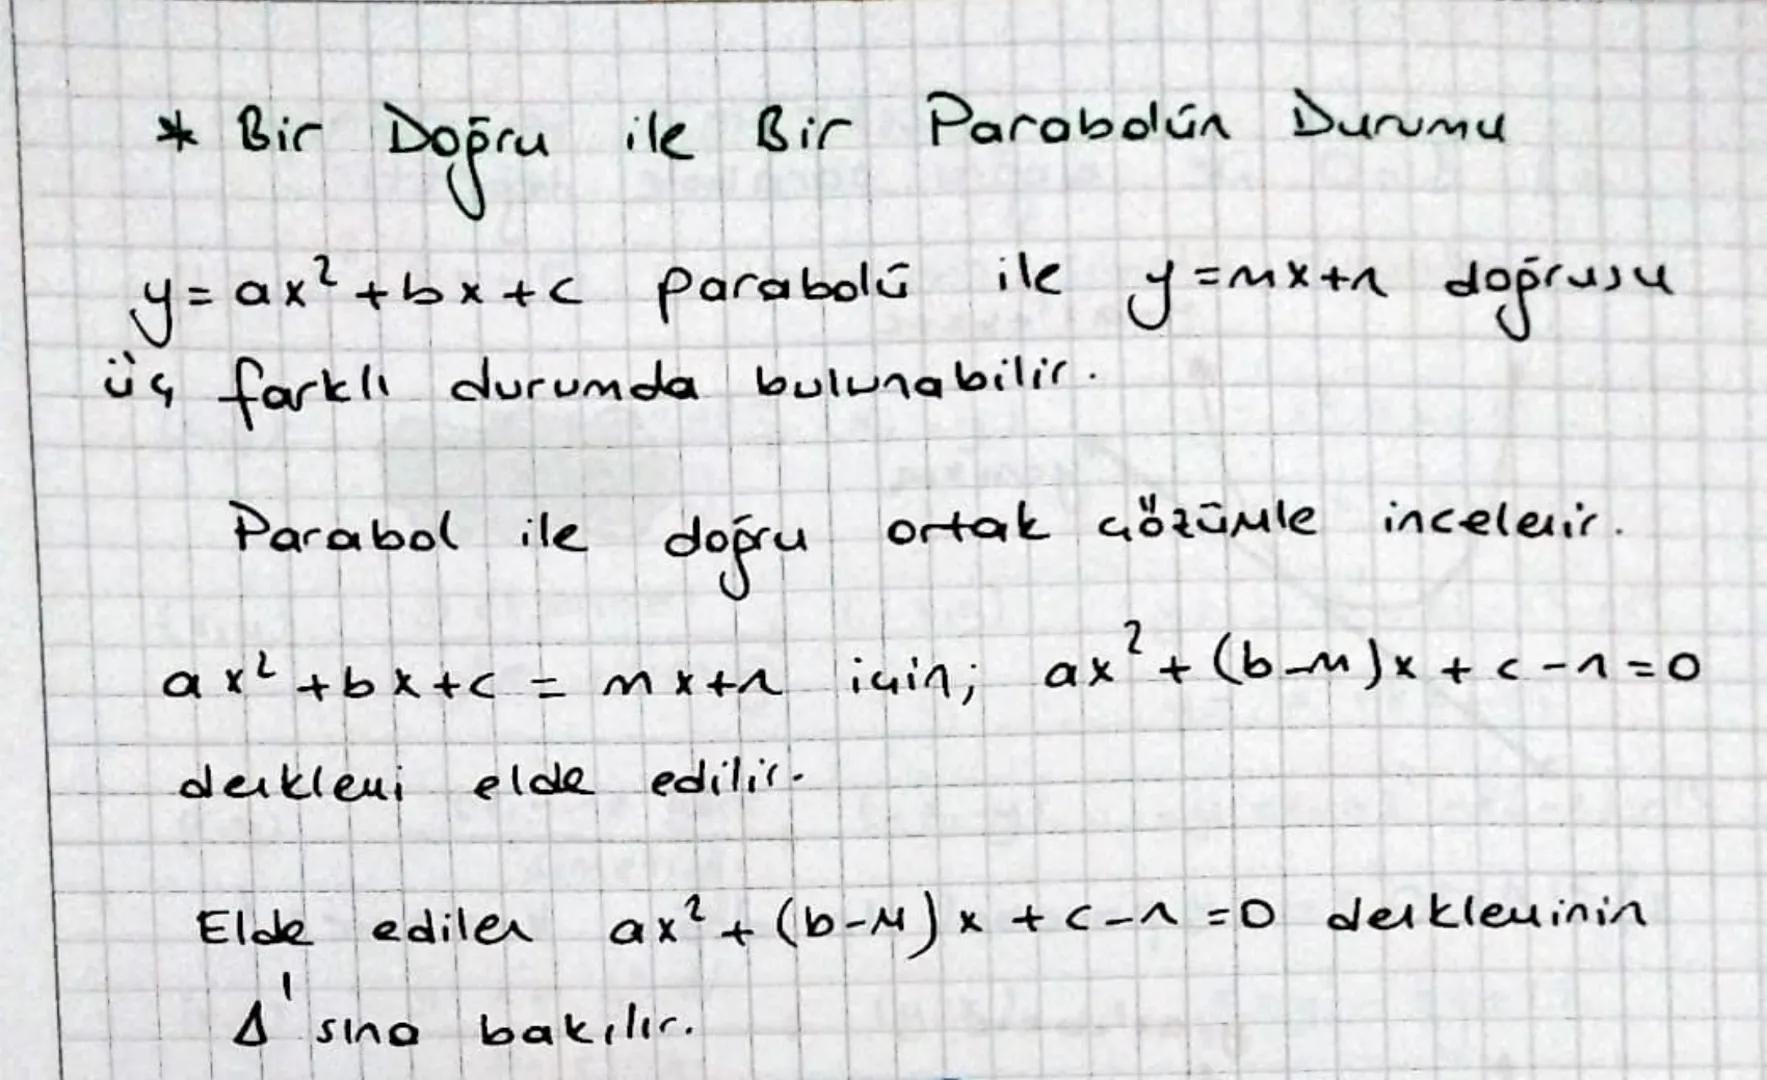 * Bir Doğru ile Bir Parabolün Durumu
y=ax²+bx+c parabolü ile y=mx+n doğrusu
üç farklı durumda bulunabilir.
Parabol ile doğru ortak çözümle incelenir.
ax²+bx+c = mx+n için; ax²+(b-m)x+c-n=0
denklemi elde edilir.
Elde edilen ax²+(b-m)x+c-n=0 denkleminin
Δ'sına bakılır.